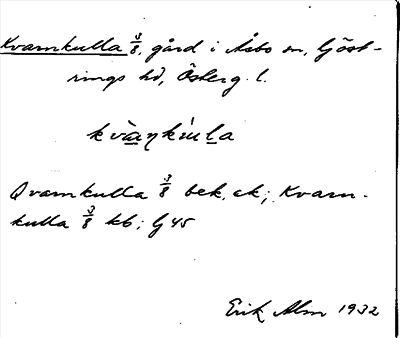 Kvarnkulla 3/8, gård i Åsbo sn, Göst-
rings hd, Österg. l.
kvàṉŋkùḻa
Qvarnkulla 3/8 bek. ek; Kvarn-
kulla 3/8 kb; G 45
Erik Alm 1932